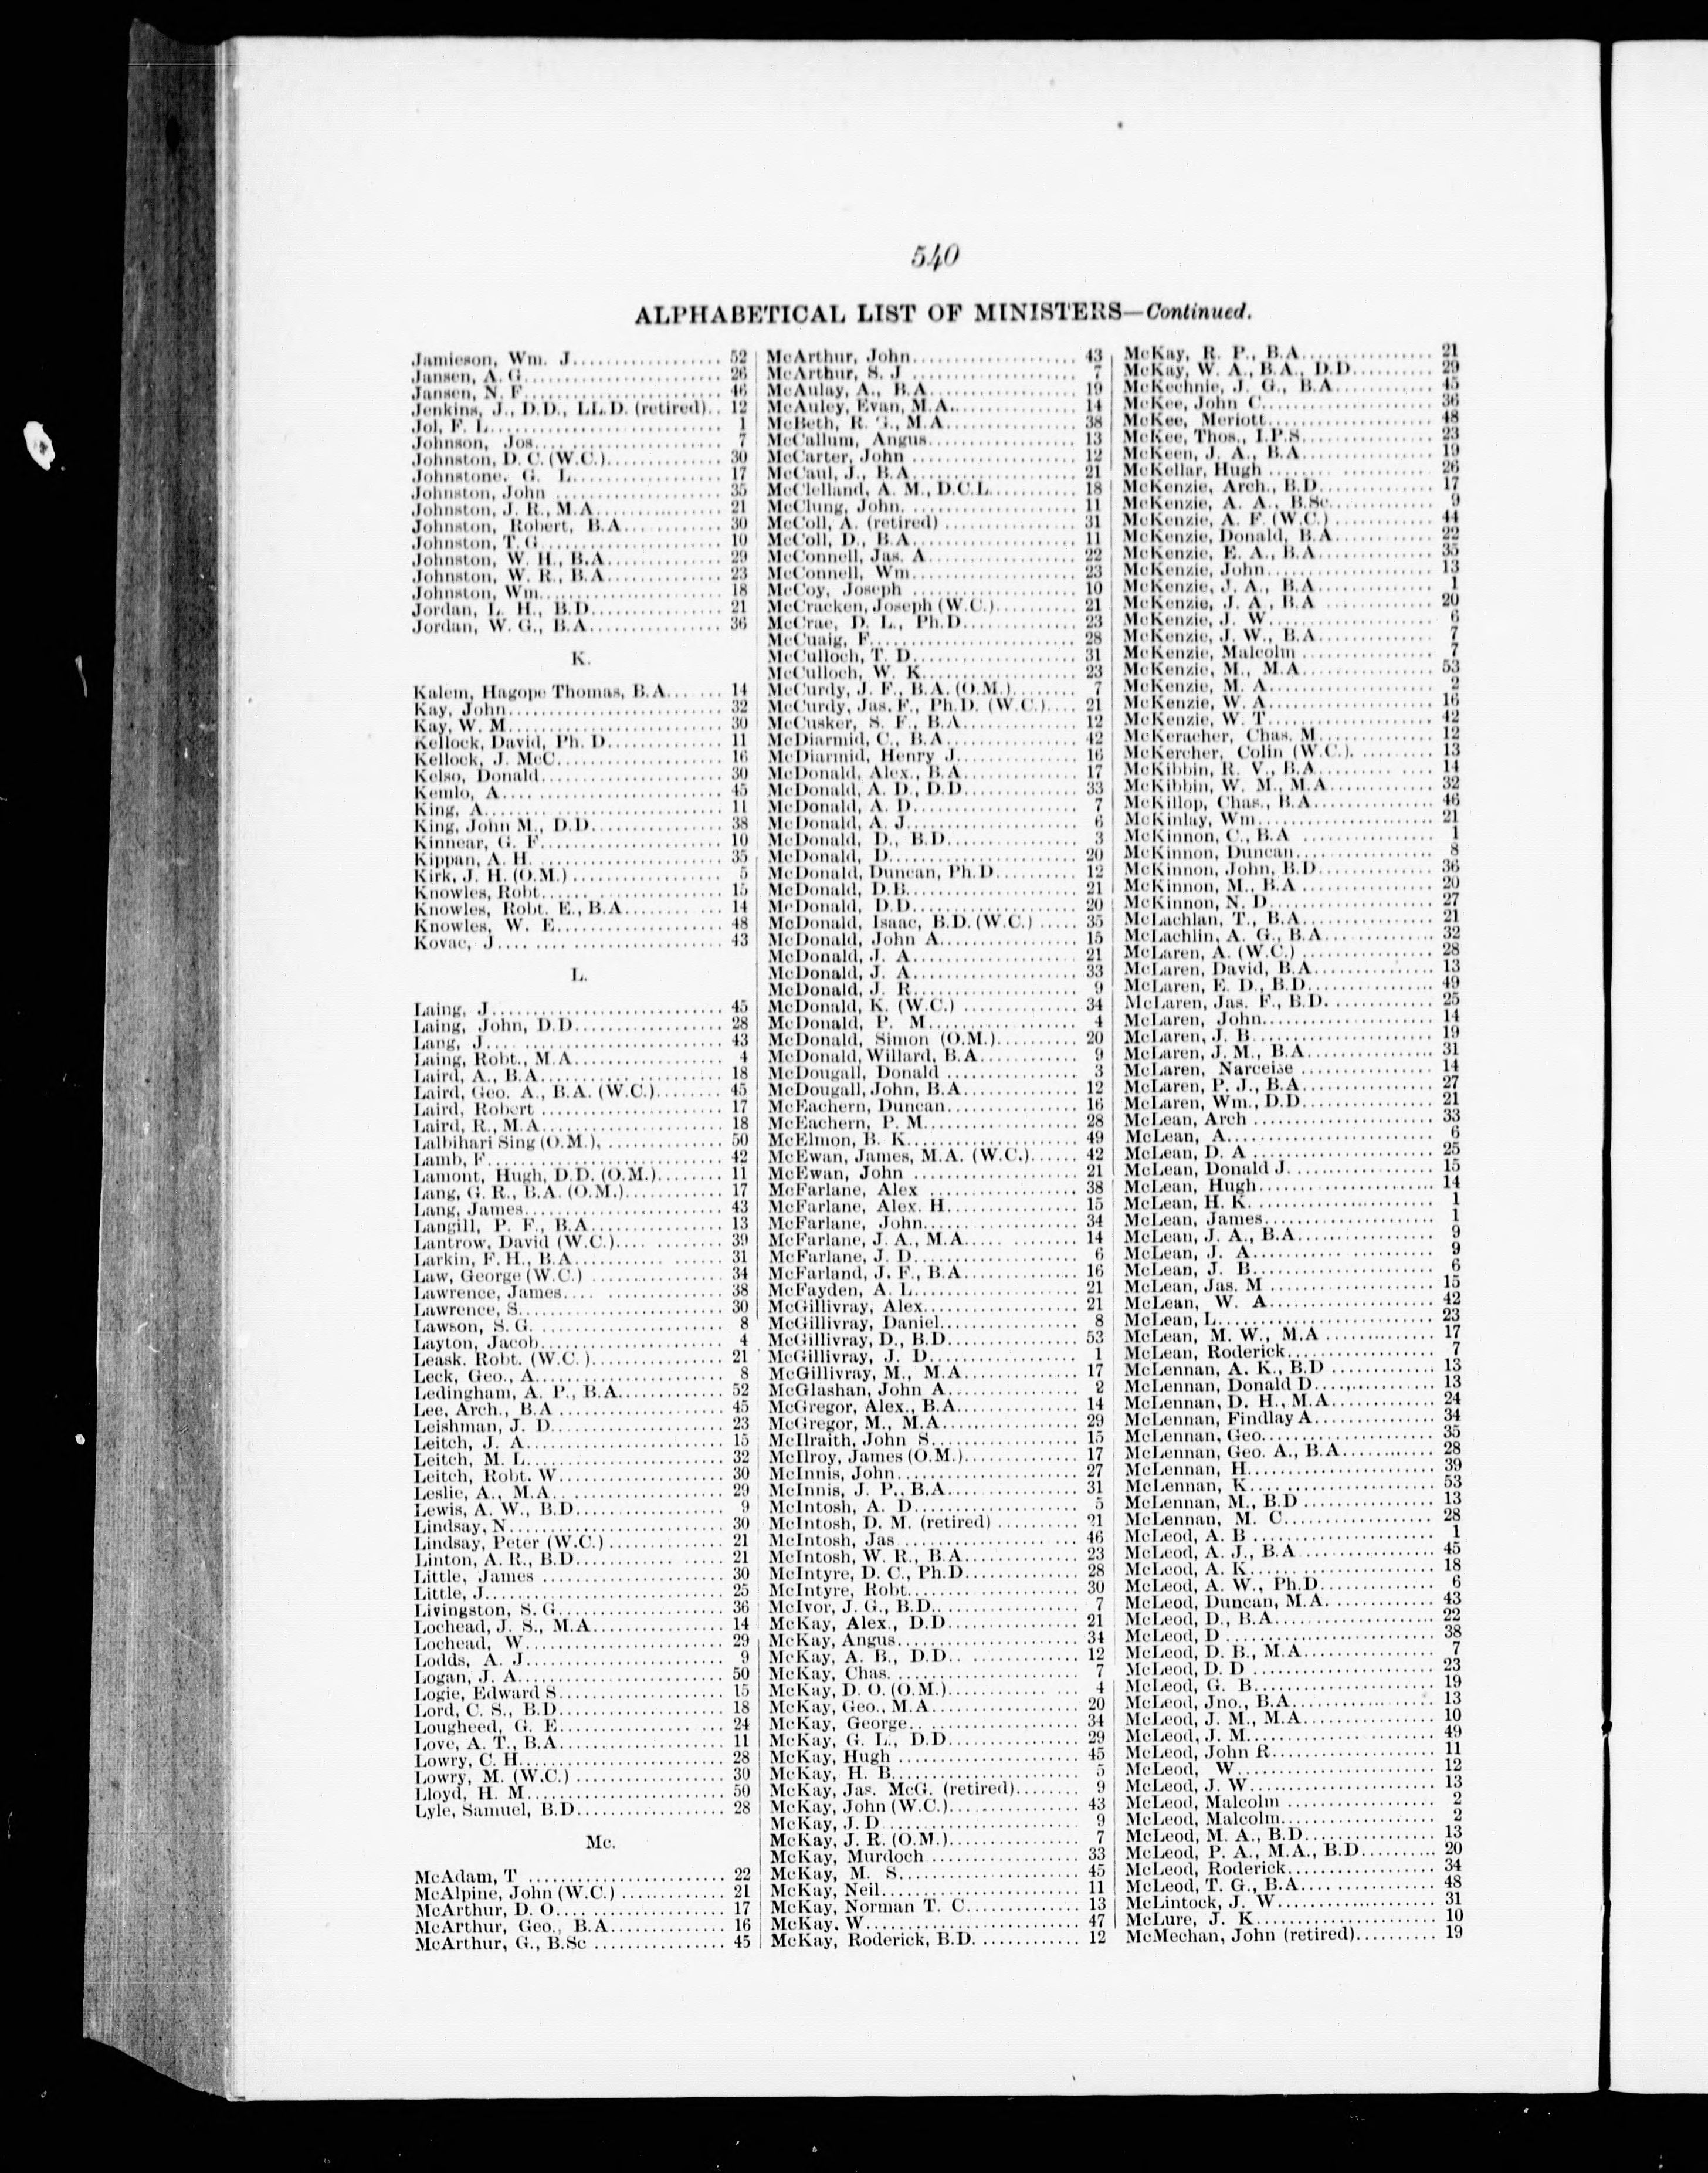 540
ALPHABETICAL LIST OF MINISTERS—Continued.
Jamieson, Wm. J. 52
Jansen, A. G. 26
Jansen, N. F. 46
Jenkins, J., D.D., LL.D. (retired). 12
Jol, F. L. 1
Johnson, Jos. 7
Johnston, D. C. (W.C.) 30
Johnstone, G. L. 17
Johnston, John 35
Johnston, J. R., M.A. 21
Johnston, Robert, B.A. 30
Johnston, T. G. 10
Johnston, W. H., B.A. 29
Johnston, W. R., B.A. 23
Johnston, Wm. 18
Jordan, L. H., B.D. 21
Jordan, W. G., B.A. 36
K.
Kalem, Hagope Thomas, B.A. 14
Kay, John 32
Kay, W. M. 30
Kellock, David, Ph. D. 11
Kellock, J. McC. 16
Kelso, Donald 30
Kemlo, A. 45
King, A. 11
King, John M., D.D. 38
Kinnear, G. F. 10
Kippan, A. H. 35
Kirk, J. H. (O.M.) 5
Knowles, Robt. 15
Knowles, Robt. E., B.A. 14
Knowles, W. E. 48
Kovac, J. 43
L.
Laing, J. 45
Laing, John, D.D. 28
Lang, J. 43
Laing, Robt., M.A. 4
Laird, A., B.A. 18
Laird, Geo. A., B.A. (W.C.) 45
Laird, Robert 17
Laird, R., M.A. 18
Lalbihari Sing (O.M.), 50
Lamb, F. 42
Lamont, Hugh, D.D. (O.M.) 11
Lang, G. R., B.A. (O.M.) 17
Lang, James 43
Langill, P. F., B.A. 13
Lantrow, David (W.C.) 39
Larkin, F. H., B.A. 31
Law, George (W.C.) 34
Lawrence, James 38
Lawrence, S. 30
Lawson, S. G. 8
Layton, Jacob 4
Leask. Robt. (W.C.) 21
Leck, Geo., A. 8
Ledingham, A. P., B.A. 52
Lee, Arch., B.A 45
Leishman, J. D. 23
Leitch, J. A. 15
Leitch, M. L. 32
Leitch, Robt. W. 30
Leslie, A., M.A. 29
Lewis, A. W., B.D. 9
Lindsay, N. 30
Lindsay, Peter (W.C.) 21
Linton, A. R., B.D. 21
Little, James 30
Little, J. 25
Livingston, S. G. 36
Lochead, J. S., M.A. 14
Lochead, W. 29
Lodds, A. J. 9
Logan, J. A. 50
Logie, Edward S. 15
Lord, C. S., B.D. 18
Lougheed, G. E. 24
Love, A. T., B.A. 11
Lowry, C. H. 28
Lowry, M. (W.C.) 30
Lloyd, H. M. 50
Lyle, Samuel, B.D. 28
Mc.
McAdam, T 22
McAlpine, John (W.C.) 21
McArthur, D. O. 17
McArthur, Geo., B.A. 16
McArthur, G., B.Sc 45
McArthur, John 43
McArthur, S. J 7
McAulay, A., B.A. 19
McAuley, Evan, M.A. 14
McBeth, R. G., M.A. 38
McCallum, Angus 13
McCarter, John 12
McCaul, J., B.A. 21
McClelland, A. M., D.C.L. 18
McClung, John. 11
McColl, A. (retired) 31
McColl, D., B.A. 11
McConnell, Jas. A. 22
McConnell, Wm. 23
McCoy, Joseph 10
McCracken, Joseph (W.C.) 21
McCrae, D. L., Ph.D. 23
McCuaig, F. 28
McCulloch, T. D. 31
McCulloch, W. K. 23
McCurdy, J. F., B.A. (O.M.) 7
McCurdy, Jas. F., Ph.D. (W.C.) 21
McCusker, S. F., B.A. 12
McDiarmid, C., B.A. 42
McDiarmid, Henry J. 16
McDonald, Alex., B.A. 17
McDonald, A. D., D.D. 33
McDonald, A. D. 7
McDonald, A. J. 6
McDonald, D., B.D. 3
McDonald, D. 20
McDonald, Duncan, Ph.D. 12
McDonald, D.B. 21
McDonald, D.D. 20
McDonald, Isaac, B.D. (W.C.) 35
McDonald, John A. 15
McDonald, J. A. 21
McDonald, J. A. 33
McDonald, J. R. 9
McDonald, K. (W.C.) 34
McDonald, P. M. 4
McDonald, Simon (O.M.) 20
McDonald, Willard, B.A. 9
McDougall, Donald 3
McDougall, John, B.A. 12
McEachern, Duncan 16
McEachern, P. M. 28
McElmon, B. K. 49
McEwan, James, M.A. (W.C.) 42
McEwan, John 21
McFarlane, Alex 38
McFarlane, Alex. H. 15
McFarlane, John 34
McFarlane, J. A., M.A. 14
McFarlane, J. D. 6
McFarland, J. F., B.A. 16
McFayden, A. L. 21
McGillivray, Alex. 21
McGillivray, Daniel. 8
McGillivray, D., B.D. 53
McGillivray, J. D. 1
McGillivray, M., M.A. 17
McGlashan, John A. 2
McGregor, Alex., B.A. 14
McGregor, M., M.A. 29
McIlraith, John S. 15
McIlroy, James (O.M.) 17
McInnis, John 27
McInnis, J. P., B.A. 31
McIntosh, A. D. 5
McIntosh, D. M. (retired) 21
McIntosh, Jas 46
McIntosh, W. R., B.A. 23
McIntyre, D. C., Ph.D. 28
McIntyre, Robt. 30
McIvor, J. G., B.D. 7
McKay, Alex., D.D. 21
McKay, Angus 34
McKay, A. B., D.D. 12
McKay, Chas. 7
McKay, D. O. (O.M.) 4
McKay, Geo., M.A. 20
McKay, George 34
McKay, G. L., D.D. 29
McKay, Hugh 45
McKay, H. B. 5
McKay, Jas. McG. (retired) 9
McKay, John (W.C.) 43
McKay, J. D 9
McKay, J. R. (O.M.) 7
McKay, Murdoch 33
McKay, M. S. 45
McKay, Neil 11
McKay, Norman T. C. 13
McKay. W. 47
McKay, Roderick, B.D. 12
McKay, R. P., B.A. 21
McKay, W. A., B.A., D.D. 29
McKechnie, J. G., B.A. 45
McKee, John C. 36
McKee, Meriott 48
McKee, Thos., I.P.S. 23
McKeen, J. A., B.A. 19
McKellar, Hugh 26
McKenzie, Arch., B.D. 17
McKenzie, A. A., B.Sc. 9
McKenzie, A. F. (W.C.) 44
McKenzie, Donald, B.A. 22
McKenzie, E. A., B.A. 35
McKenzie, John 13
McKenzie, J. A., B.A. 1
McKenzie, J. A., B.A 20
McKenzie, J. W. 6
McKenzie, J. W., B.A. 7
McKenzie, Malcolm 7
McKenzie, M., M.A. 53
McKenzie, M. A. 2
McKenzie, W. A. 16
McKenzie, W. T. 42
McKeracher, Chas. M. 12
McKercher, Colin (W.C.). 13
McKibbin, R. V., B.A. 14
McKibbin, W. M., M.A. 32
McKillop, Chas., B.A. 46
McKinlay, Wm. 21
McKinnon, C., B.A 1
McKinnon, Duncan 8
McKinnon, John, B.D. 36
McKinnon, M., B.A 20
McKinnon, N. D. 27
McLachlan, T., B.A. 21
McLachlin, A. G., B.A. 32
McLaren, A. (W.C.) 28
McLaren, David, B.A. 13
McLaren, E. D., B.D. 49
McLaren, Jas. F., B.D. 25
McLaren, John 14
McLaren, J. B. 19
McLaren, J. M., B.A. 31
McLaren, Narceise 14
McLaren, P. J., B.A. 27
McLaren, Wm., D.D. 21
McLean, Arch 33
McLean, A. 6
McLean, D. A 25
McLean, Donald J. 15
McLean, Hugh 14
McLean, H. K. 1
McLean, James 1
McLean, J. A., B.A. 9
McLean, J. A. 9
McLean, J. B. 6
McLean, Jas. M 15
McLean, W. A. 42
McLean, L. 23
McLean, M. W., M.A 17
McLean, Roderick 7
McLennan, A. K., B.D 13
McLennan, Donald D. 13
McLennan, D. H., M.A. 24
McLennan, Findlay A. 34
McLennan, Geo. 35
McLennan, Geo. A., B.A. 28
McLennan, H. 39
McLennan, K. 53
McLennan, M., B.D 13
McLennan, M. C. 28
McLeod, A. B 1
McLeod, A. J., B.A 45
McLeod, A. K. 18
McLeod, A. W., Ph.D. 6
McLeod, Duncan, M.A. 43
McLeod, D., B.A. 22
McLeod, D 38
McLeod, D. B., M.A. 7
McLeod, D. D 23
McLeod, G. B. 19
McLeod, Jno., B.A. 13
McLeod, J. M., M.A. 10
McLeod, J. M. 49
McLeod, John R. 11
McLeod, W. 12
McLeod, J. W. 13
McLeod, Malcolm 2
McLeod, Malcolm 2
McLeod, M. A., B.D. 13
McLeod, P. A., M.A., B.D. 20
McLeod, Roderick 34
McLeod, T. G., B.A. 48
McLintock, J. W. 31
McLure, J. K. 10
McMechan, John (retired) 19